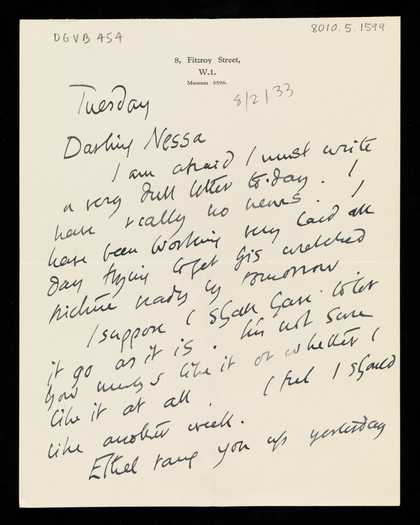 DGVB 454
8010.5.1594
8, Fitzroy Street,
W.1.
Museum
8/2/33
Tuesday
Darling Nessa
I am afraid I must write
a very dull letter to-day. I
have really no news. I
have been working very hard all
day trying to get this wretched
picture ready by tomorrow.
I suppose I shall have to let
it go as it is. I'm not sure
how much I like it or whether I
like it at all. I feel I should
like another week.
Ethel rang you up yesterday